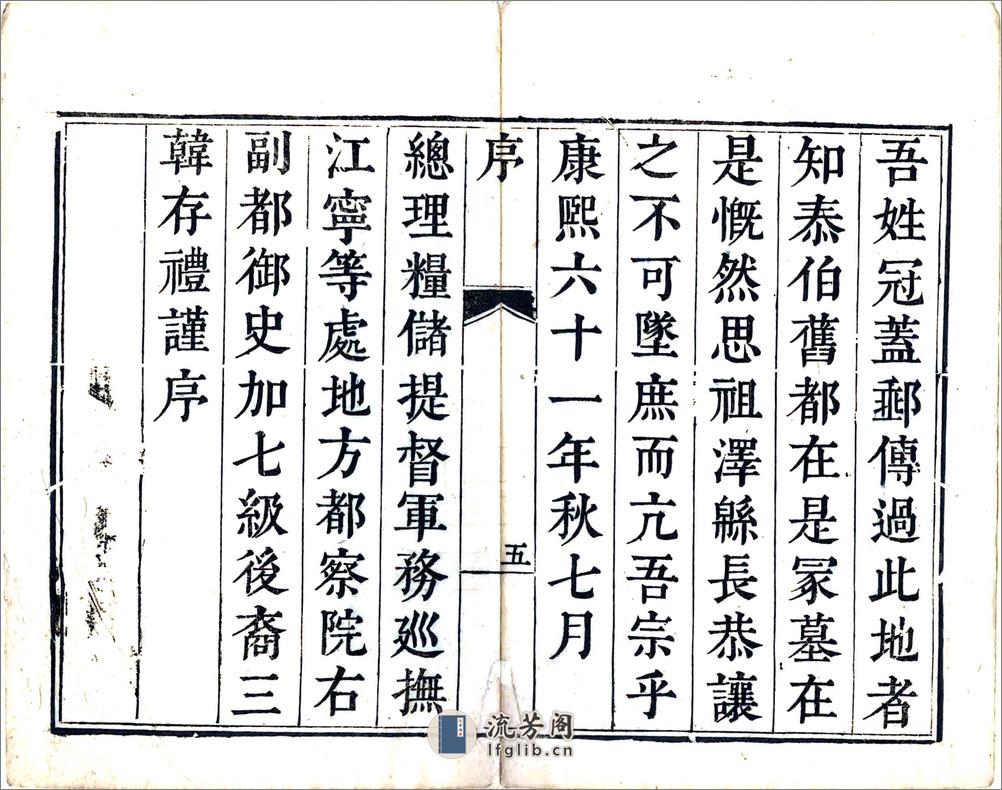 吾姓冠蓋郵傳過此地者
知泰伯舊都在是冢墓在
是慨然思祖澤緜長恭讓
之不可墜庶而亢吾宗乎
康熙六十一年秋七月
序
五
總理糧儲提督軍務廵撫
江寧等處地方都察院右
副都御史加七級後裔三
韓存禮謹序
流芳阁
lfglib.cn